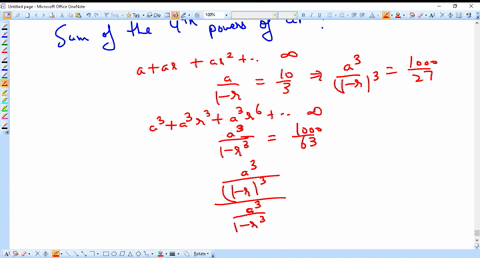 Untitled page - Microsoft OneNote
Sum of the 4th powers of
a + ar + ar² + .. ∞
a/(1-r) = 10/3 ⇒ a³/(1-r)³ = 1000/27
a³ + a³r³ + a³r⁶ + .. ∞
a³/(1-r³) = 1000/63
a³/(1-r)³
a³/(1-r³)
Rotate